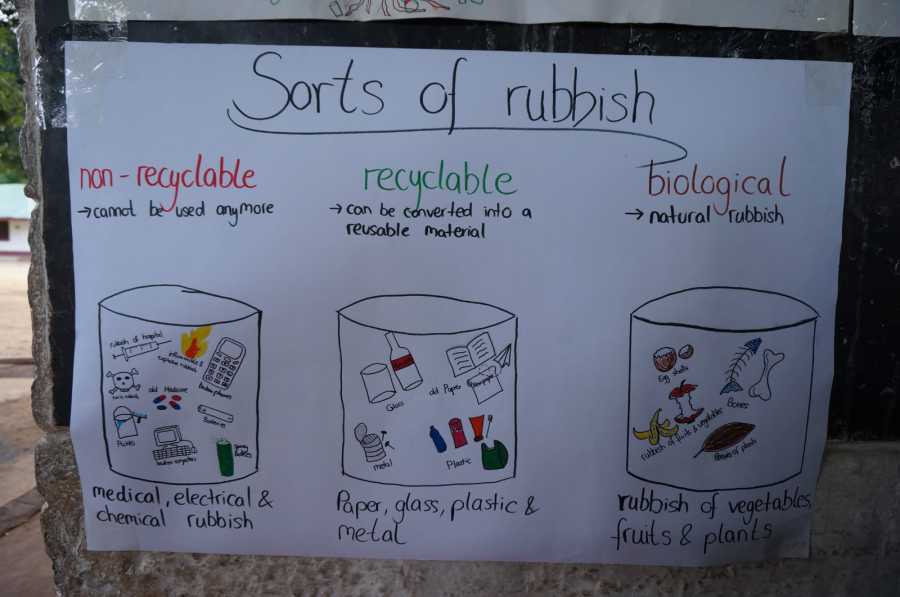 Sorts of rubbish
non-recyclable
→cannot be used anymore
recyclable
→ can be converted into a
reusable material
biological
→ natural rubbish
rubbish of hospital
inflammable &
explosive rubbish
broken phones
old Medicine
Batteries
Paints
broken computers
Glass
old Paper
metal
Plastic
Egg shells
Bones
rubbish of fruits & vegetables
leaves of plants
medical, electrical &
chemical rubbish
Paper, glass, plastic &
metal
rubbish of vegetables,
fruits & plants